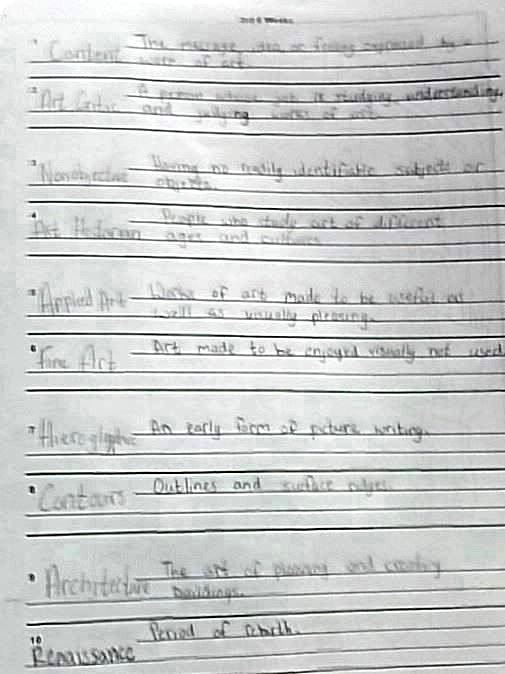 1 Content The message, idea or feeling expressed by a
work of art.
2 Art Critic A person whose job is studying, understanding,
and judging works of art.
3 Nonobjective Having no readily identifiable subjects or
objects.
4 Art Historian People who study art of different
ages and cultures
5 Applied Art Works of art made to be useful as
well as visually pleasing.
6 Fine Art Art made to be enjoyed visually not used
7 Hieroglyphic An early form of picture writing.
8 Contours Outlines and surface ridges.
9 Architecture The art of planning and creating
buildings.
10 Renaissance Period of rebirth.